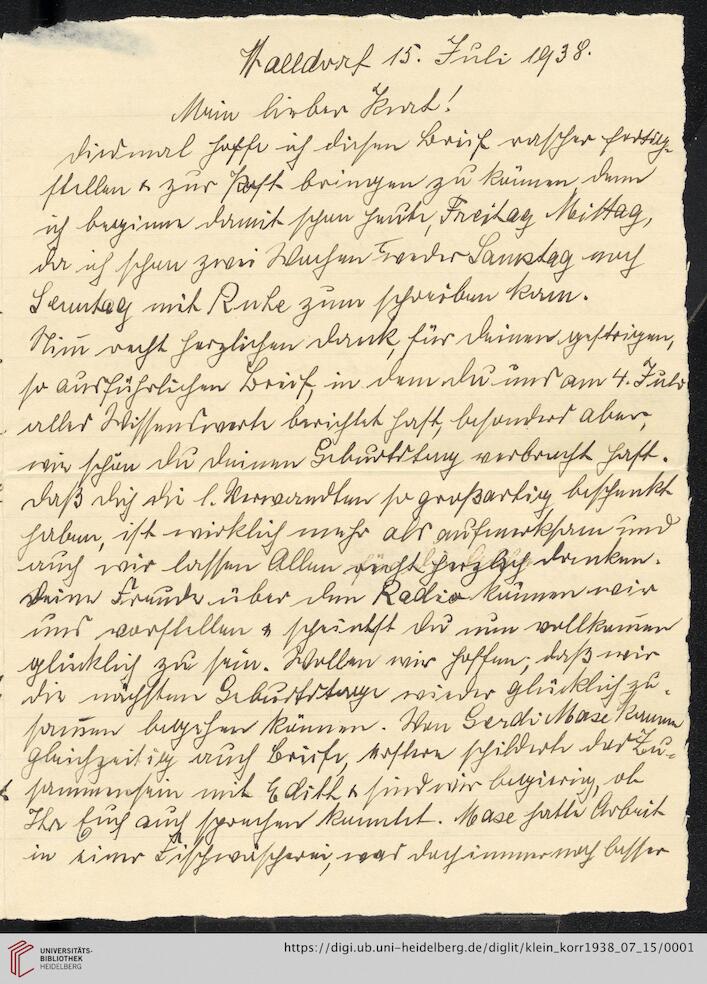 Walldorf 15. Juli 1938.
Mein lieber Kurt!
Diesmal hoffe ich diesen Brief rascher fertig-
stellen & zur Post bringen zu können denn
ich beginne damit schon heute, Freitag Mittag,
da ich schon zwei Wochen weder Samstag noch
Sonntag mit Ruhe zum schreiben kam.
Nim̅ recht herzlichen Dank, für Deinen gestrigen,
so ausführlichen Brief, in dem Du uns am 4. Juli
alles Wissenswerte berichtet hast, besonders aber,
wie schön Du Deinen Geburtstag verbracht hast.
Daß Dich die l. Verwandten so großartig beschenkt
haben, ist wirklich mehr als aufmerksam und
auch wir lassen Allen recht herzlich danken.
Deine Freude über den Radio können wir
uns vorstellen & scheinst Du nun vollkom̅en
glücklich zu sein. Wollen wir hoffen, daß wir
die nächsten Geburtstage wieder glücklich zu-
sam̅en begehen können. Von Gerdi Mase kamen
gleichzeitig auch Briefe, erstere schilderte das Zu-
sammensein mit Edith & sind wir begierig, ob
Ihr Euch auch sprechen konntet. Mase hatte Arbeit
in einer Tischwäscherei, was doch immer noch besser
UNIVERSITÄTS-
BIBLIOTHEK
HEIDELBERG
https://digi.ub.uni-heidelberg.de/diglit/klein_korr1938_07_15/0001